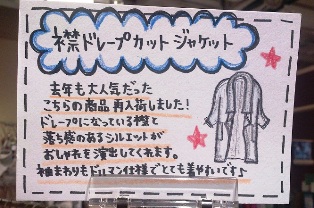 襟ドレープカットジャケット
去年も大人気だった
こちらの商品再入荷しました!
ドレープになっている襟と
落ち感のあるシルエットが
おしゃれを演出してくれます。
袖まわりもドルマン仕様でとても着やすいです♪